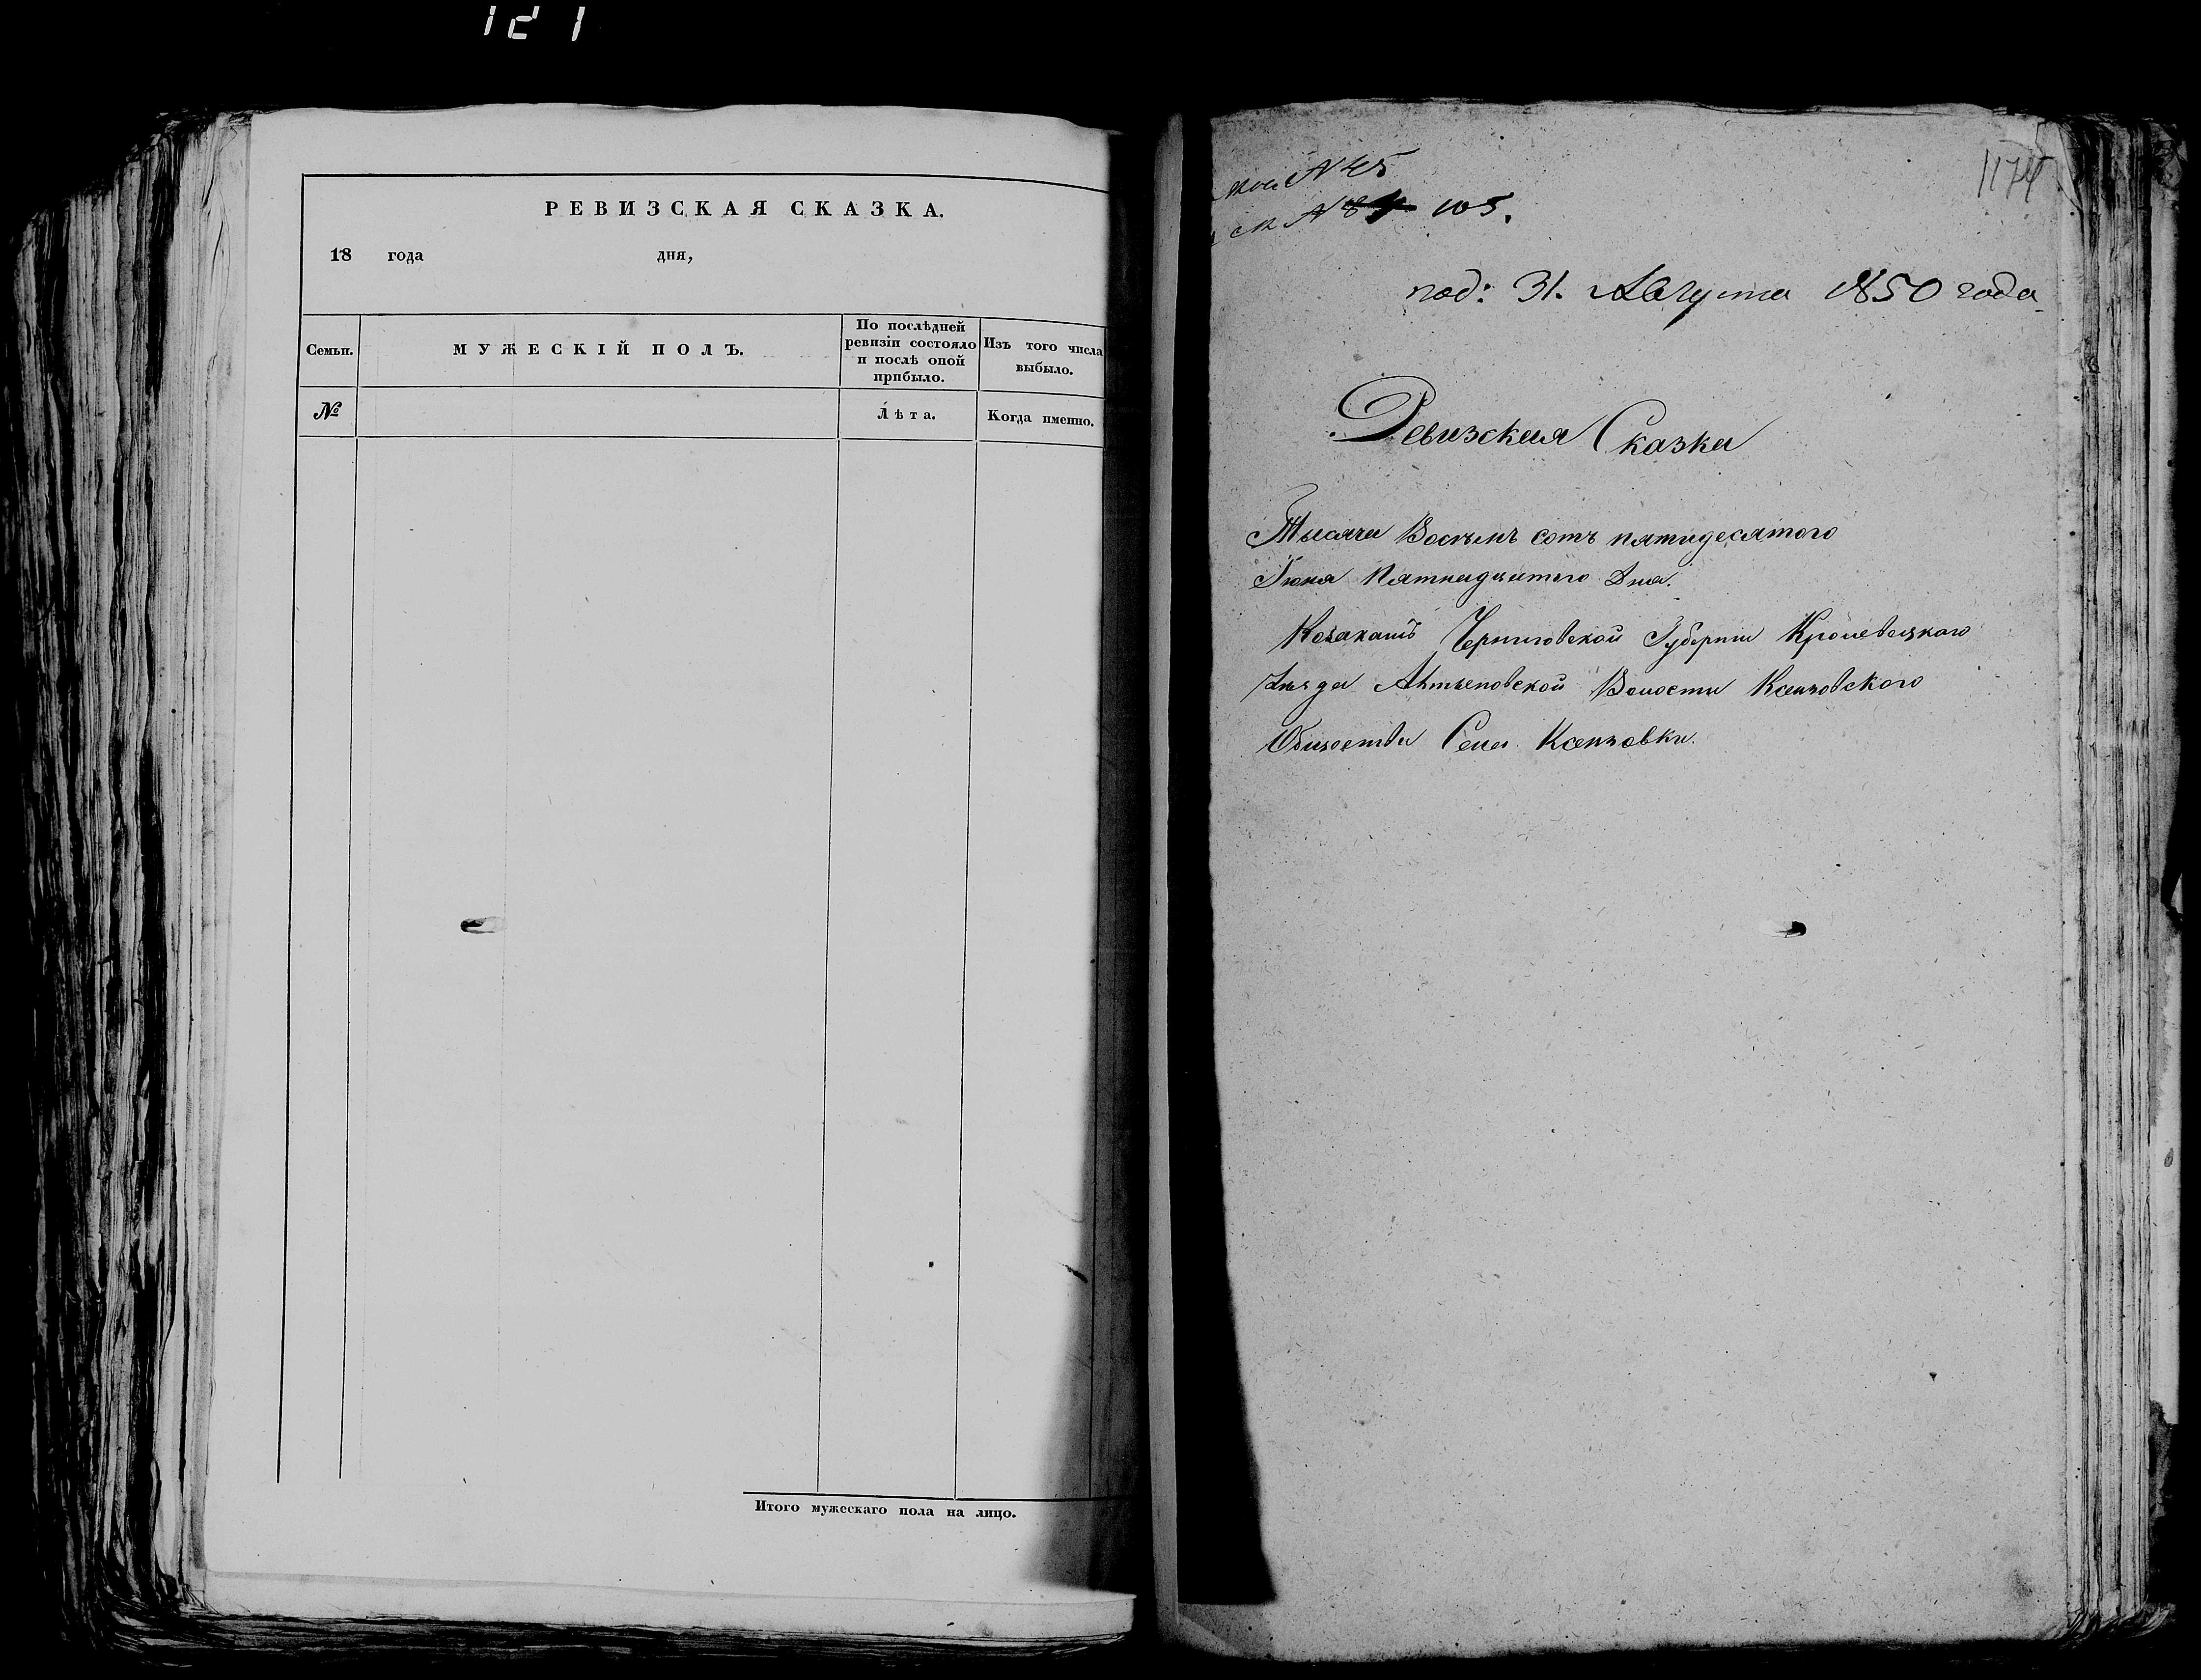 121
РЕВИЗСКАЯ СКАЗКА.
18 года дня,
Семьи.
МУЖЕСКІЙ ПОЛЪ.
По послѣдней ревизіи состояло и послѣ оной прибыло.
Изъ того числа выбыло.
№
Лѣта.
Когда именно.
Итого мужескаго пола на лицо.
№ 45
№ 105.
1174
под: 31. Августа 1850 года
Ревизская Сказка
Тысяча Восемь сотъ пятидесятого
Іюня Пятнадцятого Дня.
Козакамъ Черниговской Губерніи Кролевецкого
Уѣзда Антыповской Волости Ксензовского
Общества Села Ксензовки.